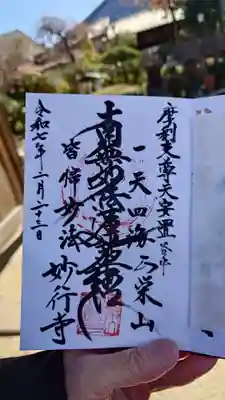 摩利支尊天安置
一天四海
栄山
南無妙法蓮華経
皆帰妙法
妙行寺
令和七年二月二十三日